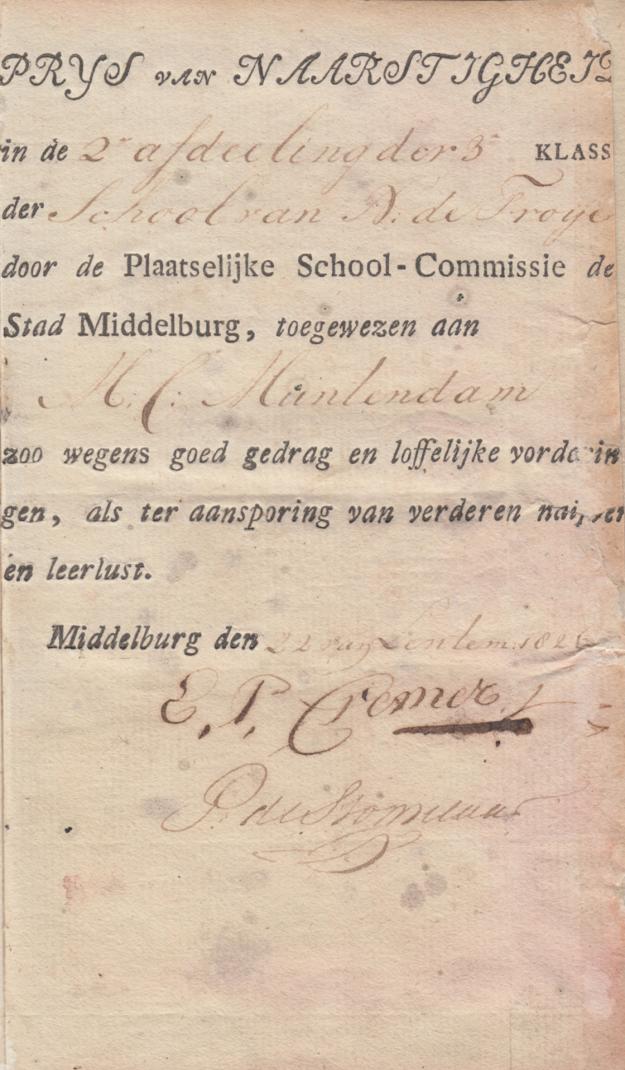 PRYS VAN NAARSTIGHEID
in de 2e afdeeling der 3e KLASS
der School van A. de Troije
door de Plaatselijke School-Commissie de
Stad Middelburg, toegewezen aan
M. C. Muntendam
zoo wegens goed gedrag en loffelijke vorderin
gen, als ter aansporing van verderen
en leerlust.
Middelburg den 22 van Septem. 1826
E. P. Cremer
P. de